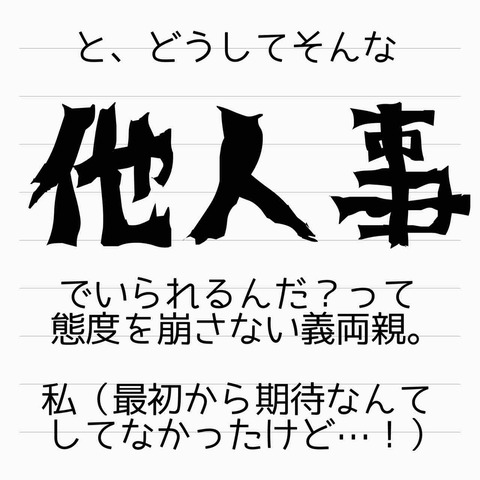 と、どうしてそんな
他人事
でいられるんだ？って
態度を崩さない義両親。
私（最初から期待なんて
してなかったけど…！）